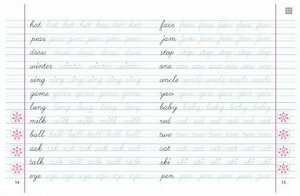 hat hat hat hat hat hat
pear pear pear pear pear pear
dress dress dress dress dress
winter winter winter winter
sing sing sing sing sing sing
game game game game game
long long long long long
milk milk milk milk milk
ball ball ball ball ball ball
ask ask ask ask ask ask
talk talk talk talk talk
eye eye eye eye eye eye
14
face face face face face
jam jam jam jam jam
stop stop stop stop stop
one one one one one one
uncle uncle uncle uncle
you you you you you
baby baby baby baby baby
red red red red red red
two two two two two two
cat cat cat cat cat cat
ski ski ski ski ski ski
sky sky sky sky sky
15